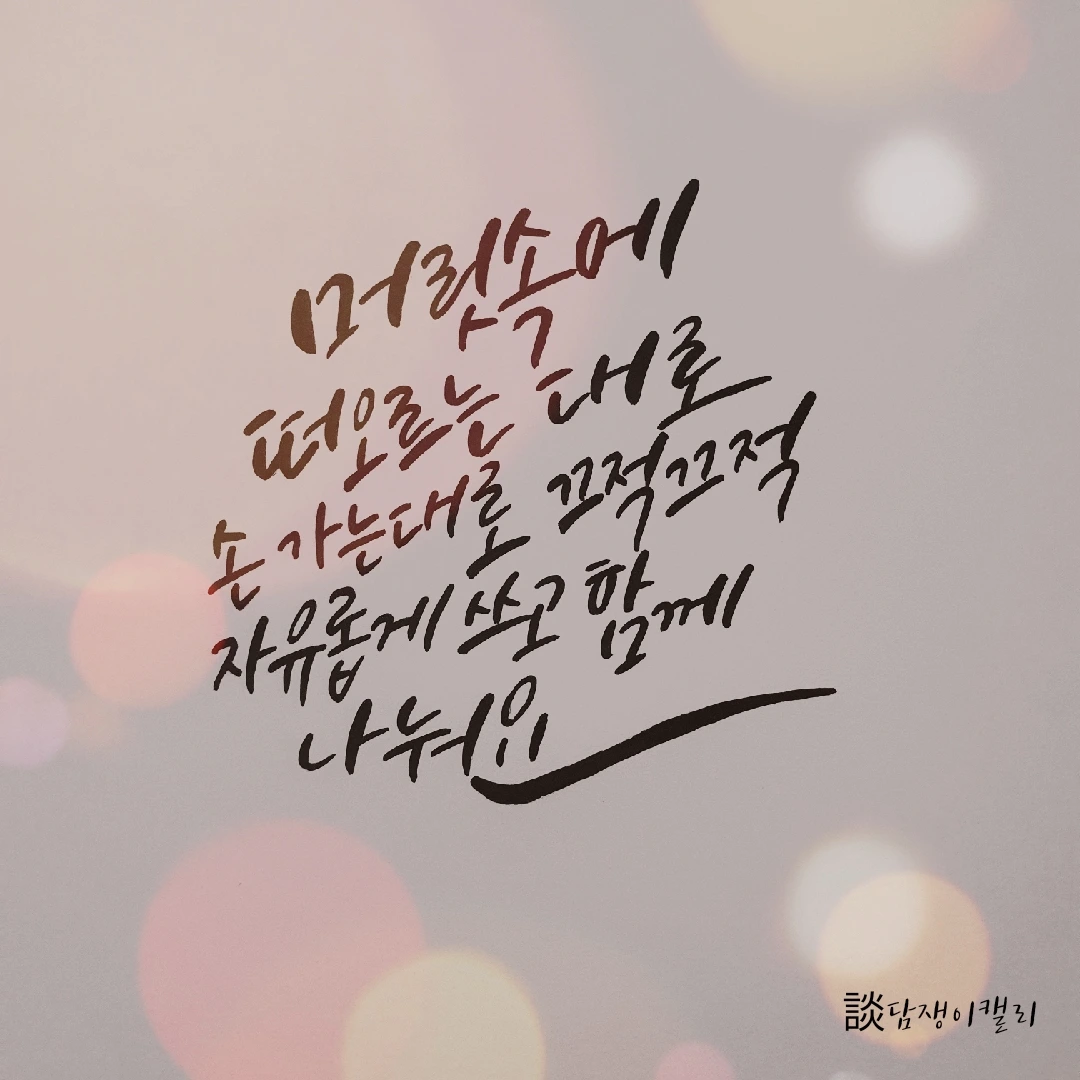 머릿속에
떠오르는 대로
손 가는대로 끄적끄적
자유롭게 쓰고 함께
나눠요
談담쟁이캘리